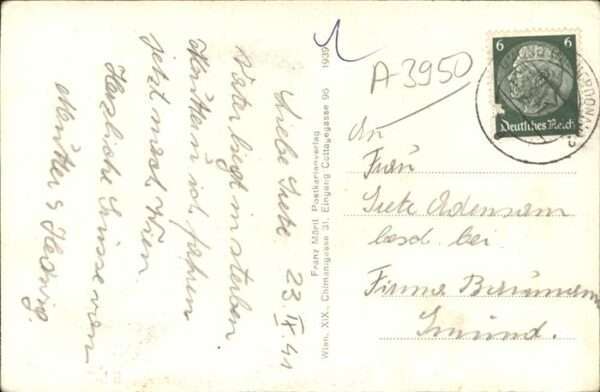 Liebe Grete 23.IX.41
Vater liegt im sterben
Mutter u. ich fahren
jetzt nach Wien.
Herzliche Grüsse von
Mutter & Hedwig.
Franz Mörtl, Postkartenverlag
Wien, XIX., Chimanigasse 31, Eingang Cottagegasse 96 1939
A 3950
6 6
Deutsches Reich
An
Frau
Grete Adensam
besch. bei
Firma
Gmünd.